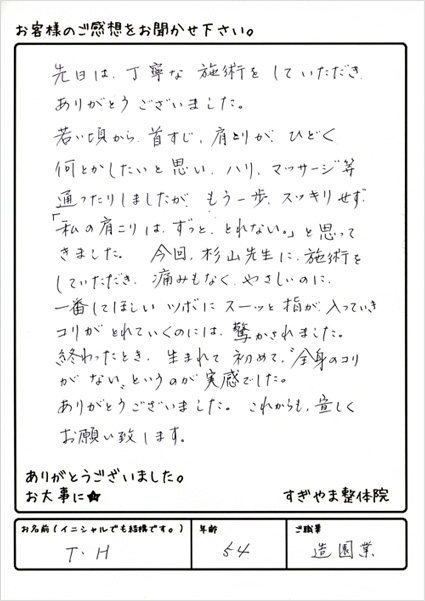 お客様のご感想をお聞かせ下さい。
先日は、丁寧な 施術を していただき
ありがとうございました。
若い頃から 首すじ、肩こりが ひどく
何とかしたいと思い、ハリ、マッサージ等
通ったりしましたが、もう一歩、スッキリせず、
「私の肩こりは、ずっと、とれない。」と思って
きました。 今回、杉山先生に、施術を
していただき、痛みもなく、やさしいのに、
一番してほしい ツボに スーッと 指が 入っていき
コリが とれていくのには、驚かされました。
終わったとき、生まれて 初めて、"全身のコリ
が ない"というのが 実感でした。
ありがとうございました。 これからも、宜しく
お願い致します。
ありがとうございました。
お大事に★ すぎやま整体院
お名前(イニシャルでも結構です。) 年齢 ご職業
T・H 54 造園業